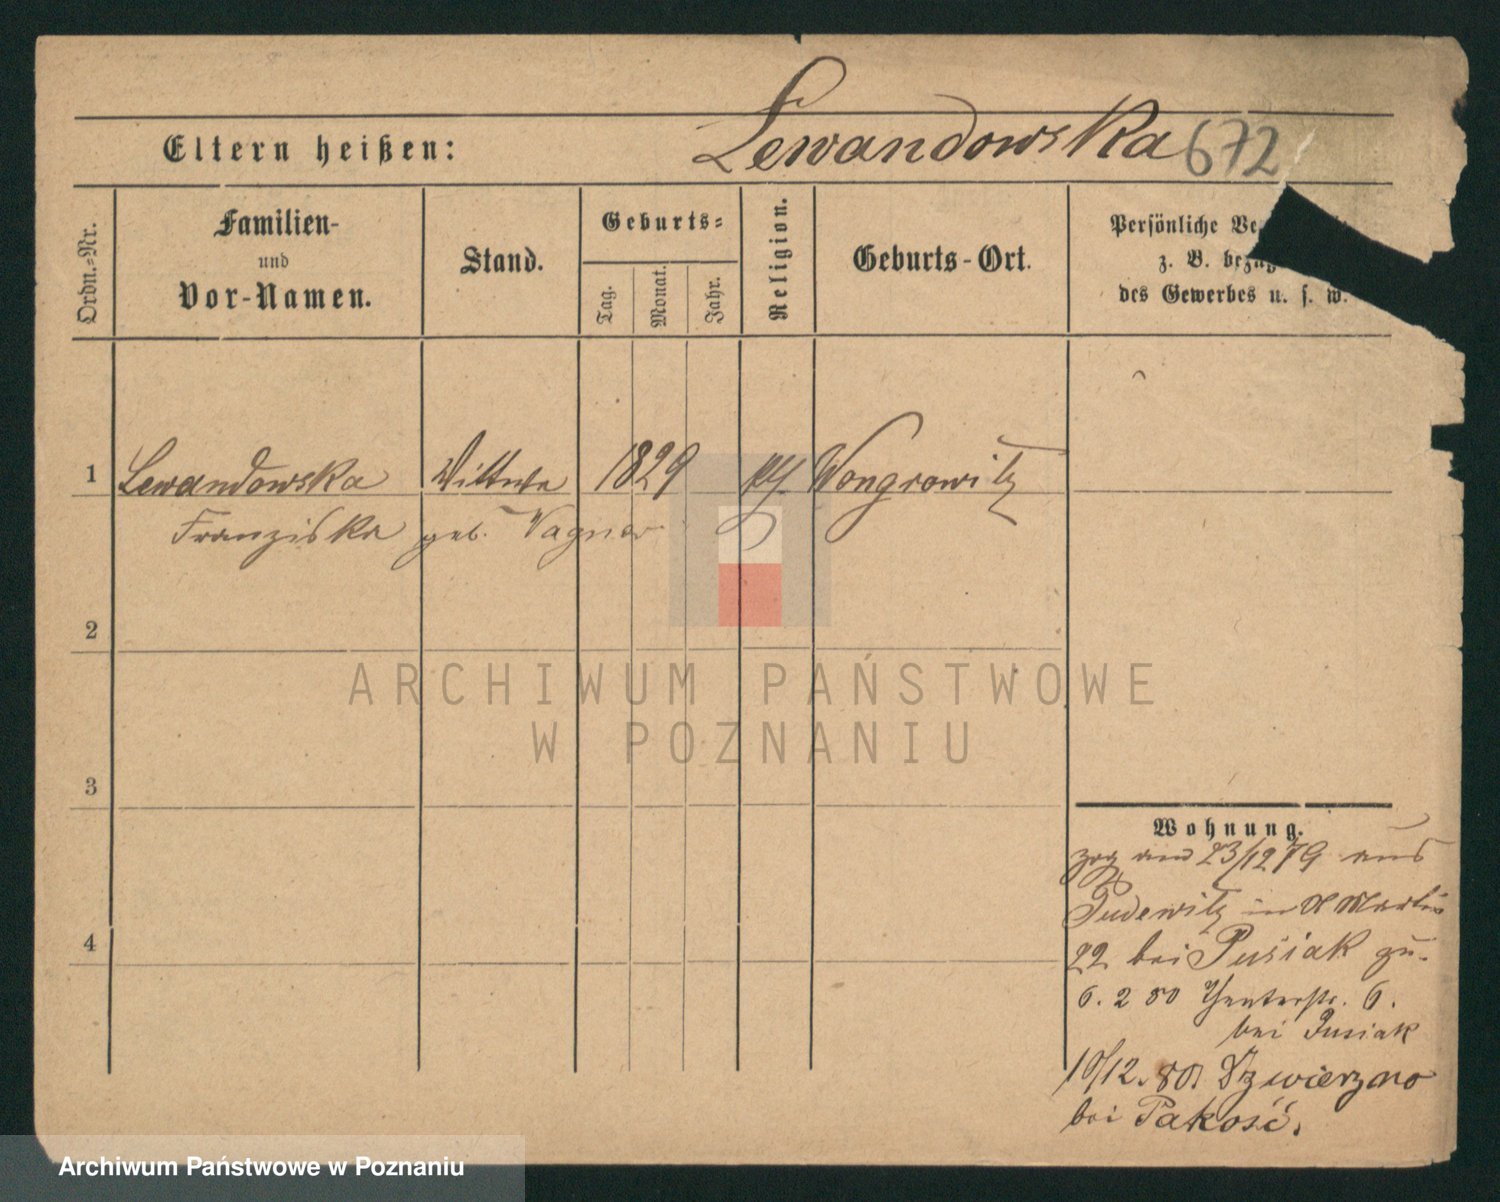 Lewandowska 672
Eltern heißen:
Ordn.-Nr.
Familien-
und
Vor-Namen.
Stand.
Geburts-
Tag.
Monat.
Jahr.
Religion.
Geburts-Ort.
Persönliche
z. B.
des Gewerbes u. s. w.
1 Lewandowska Wittwe 1829 kth. Wongrowitz
Franziska geb. Wagner
2
3
4
Wohnung.
zog am 23/12 79 aus
Pudewitz in St Martin
22 bei Pusiak zu.
6. 2 80 Theaterstr. 6.
bei Pusiak
10/12. 80.
bei Pakość.
ARCHIWUM PAŃSTWOWE
W POZNANIU
Archiwum Państwowe w Poznaniu